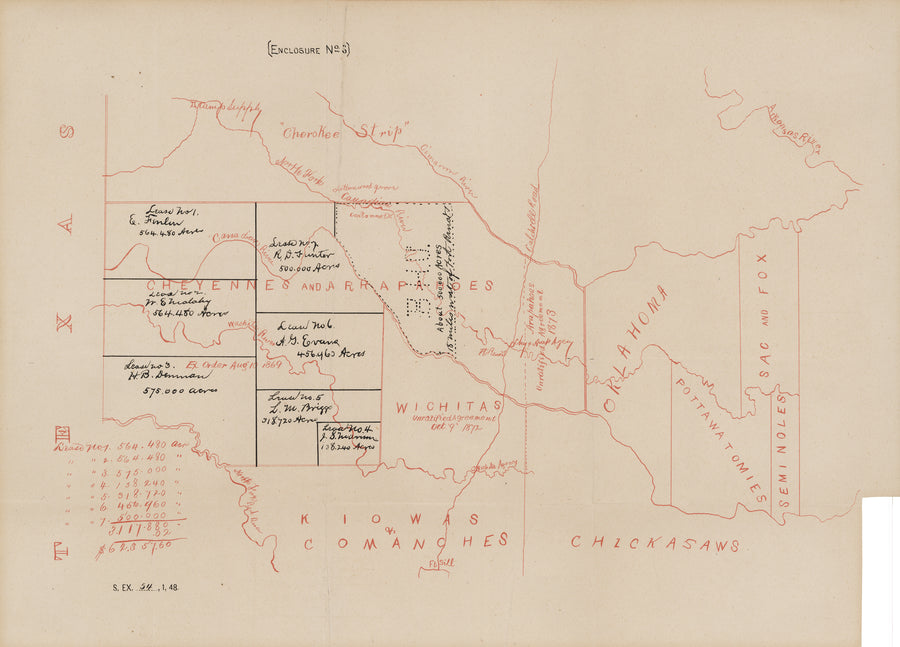 (ENCLOSURE No 3)
Camp Supply
"Cherokee Strip"
Cimarron River
Arkansas River
North Fork
Cottonwood grove
Canadian River
Cantonment
Caldwell Road
TEXAS
Lease No 1.
E. Fenlon
564.480 Acres
Canadian River
Lease No 7
R. D. Hunter
500.000 Acres
About 500.000 Acres
15 miles west of Fort Reno
CHEYENNES AND ARRAPAHOES
Lease no 2.
564.480 Acres
Washita River
Lease No 6.
A. G. Evans
456.960 Acres
Arrapahoes
Unratified Agreement
1873
Ft Reno
Chey & Arap Agency
OKLAHOMA
SAC AND FOX
Lease no 3.
H. B. Denman
575.000 acres
Ex Order Aug 10 1869
Lease No. 5
L. M. Briggs
318.720 Acres
Lease No. 4
138.240 Acres
WICHITAS
Unratified Agreement
Oct 9" 1872
POTTAWATOMIES
SEMINOLES
Lease No 1. 564.480 Acr
" " 2. 564.480 "
" " 3. 575.000 "
" " 4. 138.240 "
" " 5. 318.720 "
" " 6. 456.960 "
" 7. 500.000 "
3117.880
.02
$62.357.60
North Fork Red River
Wichita Agency
KIOWAS
&
COMANCHES
CHICKASAWS
Ft Sill
S. EX. 54, 1, 48.